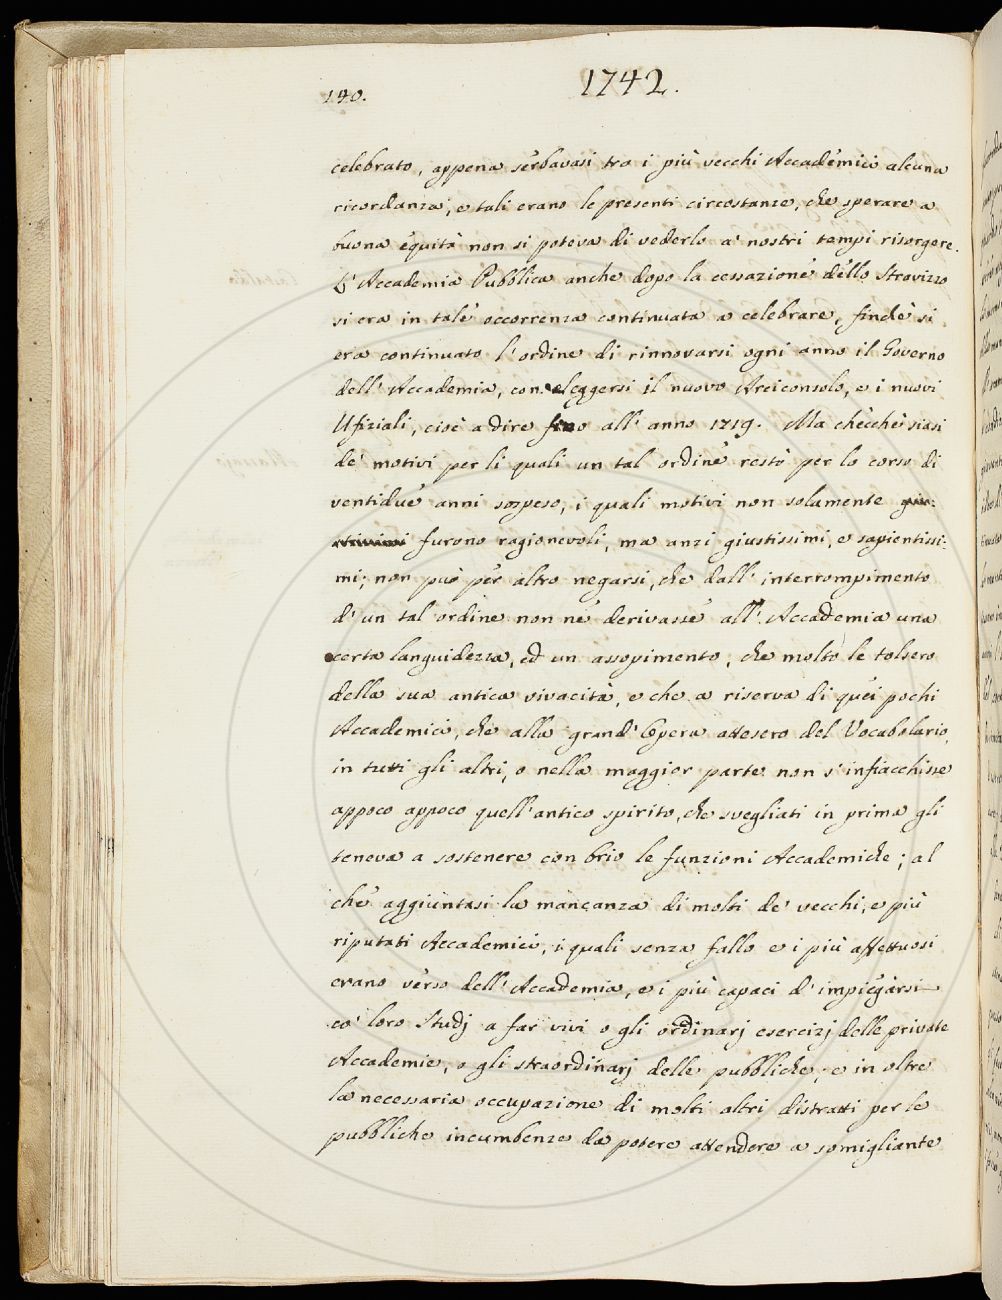 140.
1742.
celebrato, appena serbavasi tra i più vecchi Accademici alcuna
ricordanza; e tali erano le presenti circostanze, che sperare a
buona equità non si poteva di vederlo a' nostri tempi risorgere.
L'Accademia Pubblica anche dopo la cessazione dello Stravizzo
si era in tale occorrenza continuata a celebrare, finchè si
era continuato l'ordine di rinnovarsi ogni anno il Governo
dell'Accademia, con eleggersi il nuovo Arciconsolo, e i nuovi
Ufiziali, cioè a dire fino all'anno 1719. Ma checchè siasi
de' motivi per li quali un tal ordine restò per lo corso di
ventidue anni sospeso, i quali motivi non solamente
furono ragionevoli, ma anzi giustissimi, e sapientissi-
mi; non può per altro negarsi, che dall'interrompimento
d'un tal ordine non ne derivasse all'Accademia una
certa languidezza, ed un assopimento, che molto le tolsero
della sua antica vivacità, e che a riserva di quei pochi
Accademici, che alla grand'Opera attesero del Vocabolario,
in tutti gli altri, o nella maggior parte non s'infiacchisse
appoco appoco quell'antico spirito, che svegliati in prima gli
teneva a sostenere con brio le funzioni Accademiche; al
che aggiuntasi la mancanza di molti de' vecchi, e più
riputati Accademici, i quali senza fallo e i più affettuosi
erano verso dell'Accademia, e i più capaci d'impiegarsi
co' loro Studj a far vivi o gli ordinarj esercizj delle private
Accademie, o gli straordinarj delle pubbliche; e in oltre
la necessaria occupazione di molti altri distratti per le
pubbliche incumbenze da potere attendere a somigliante